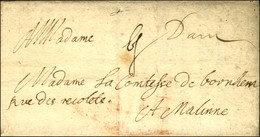 A Madame
Madame La Comtesse de bornhem
rue des recolets
A Malinne